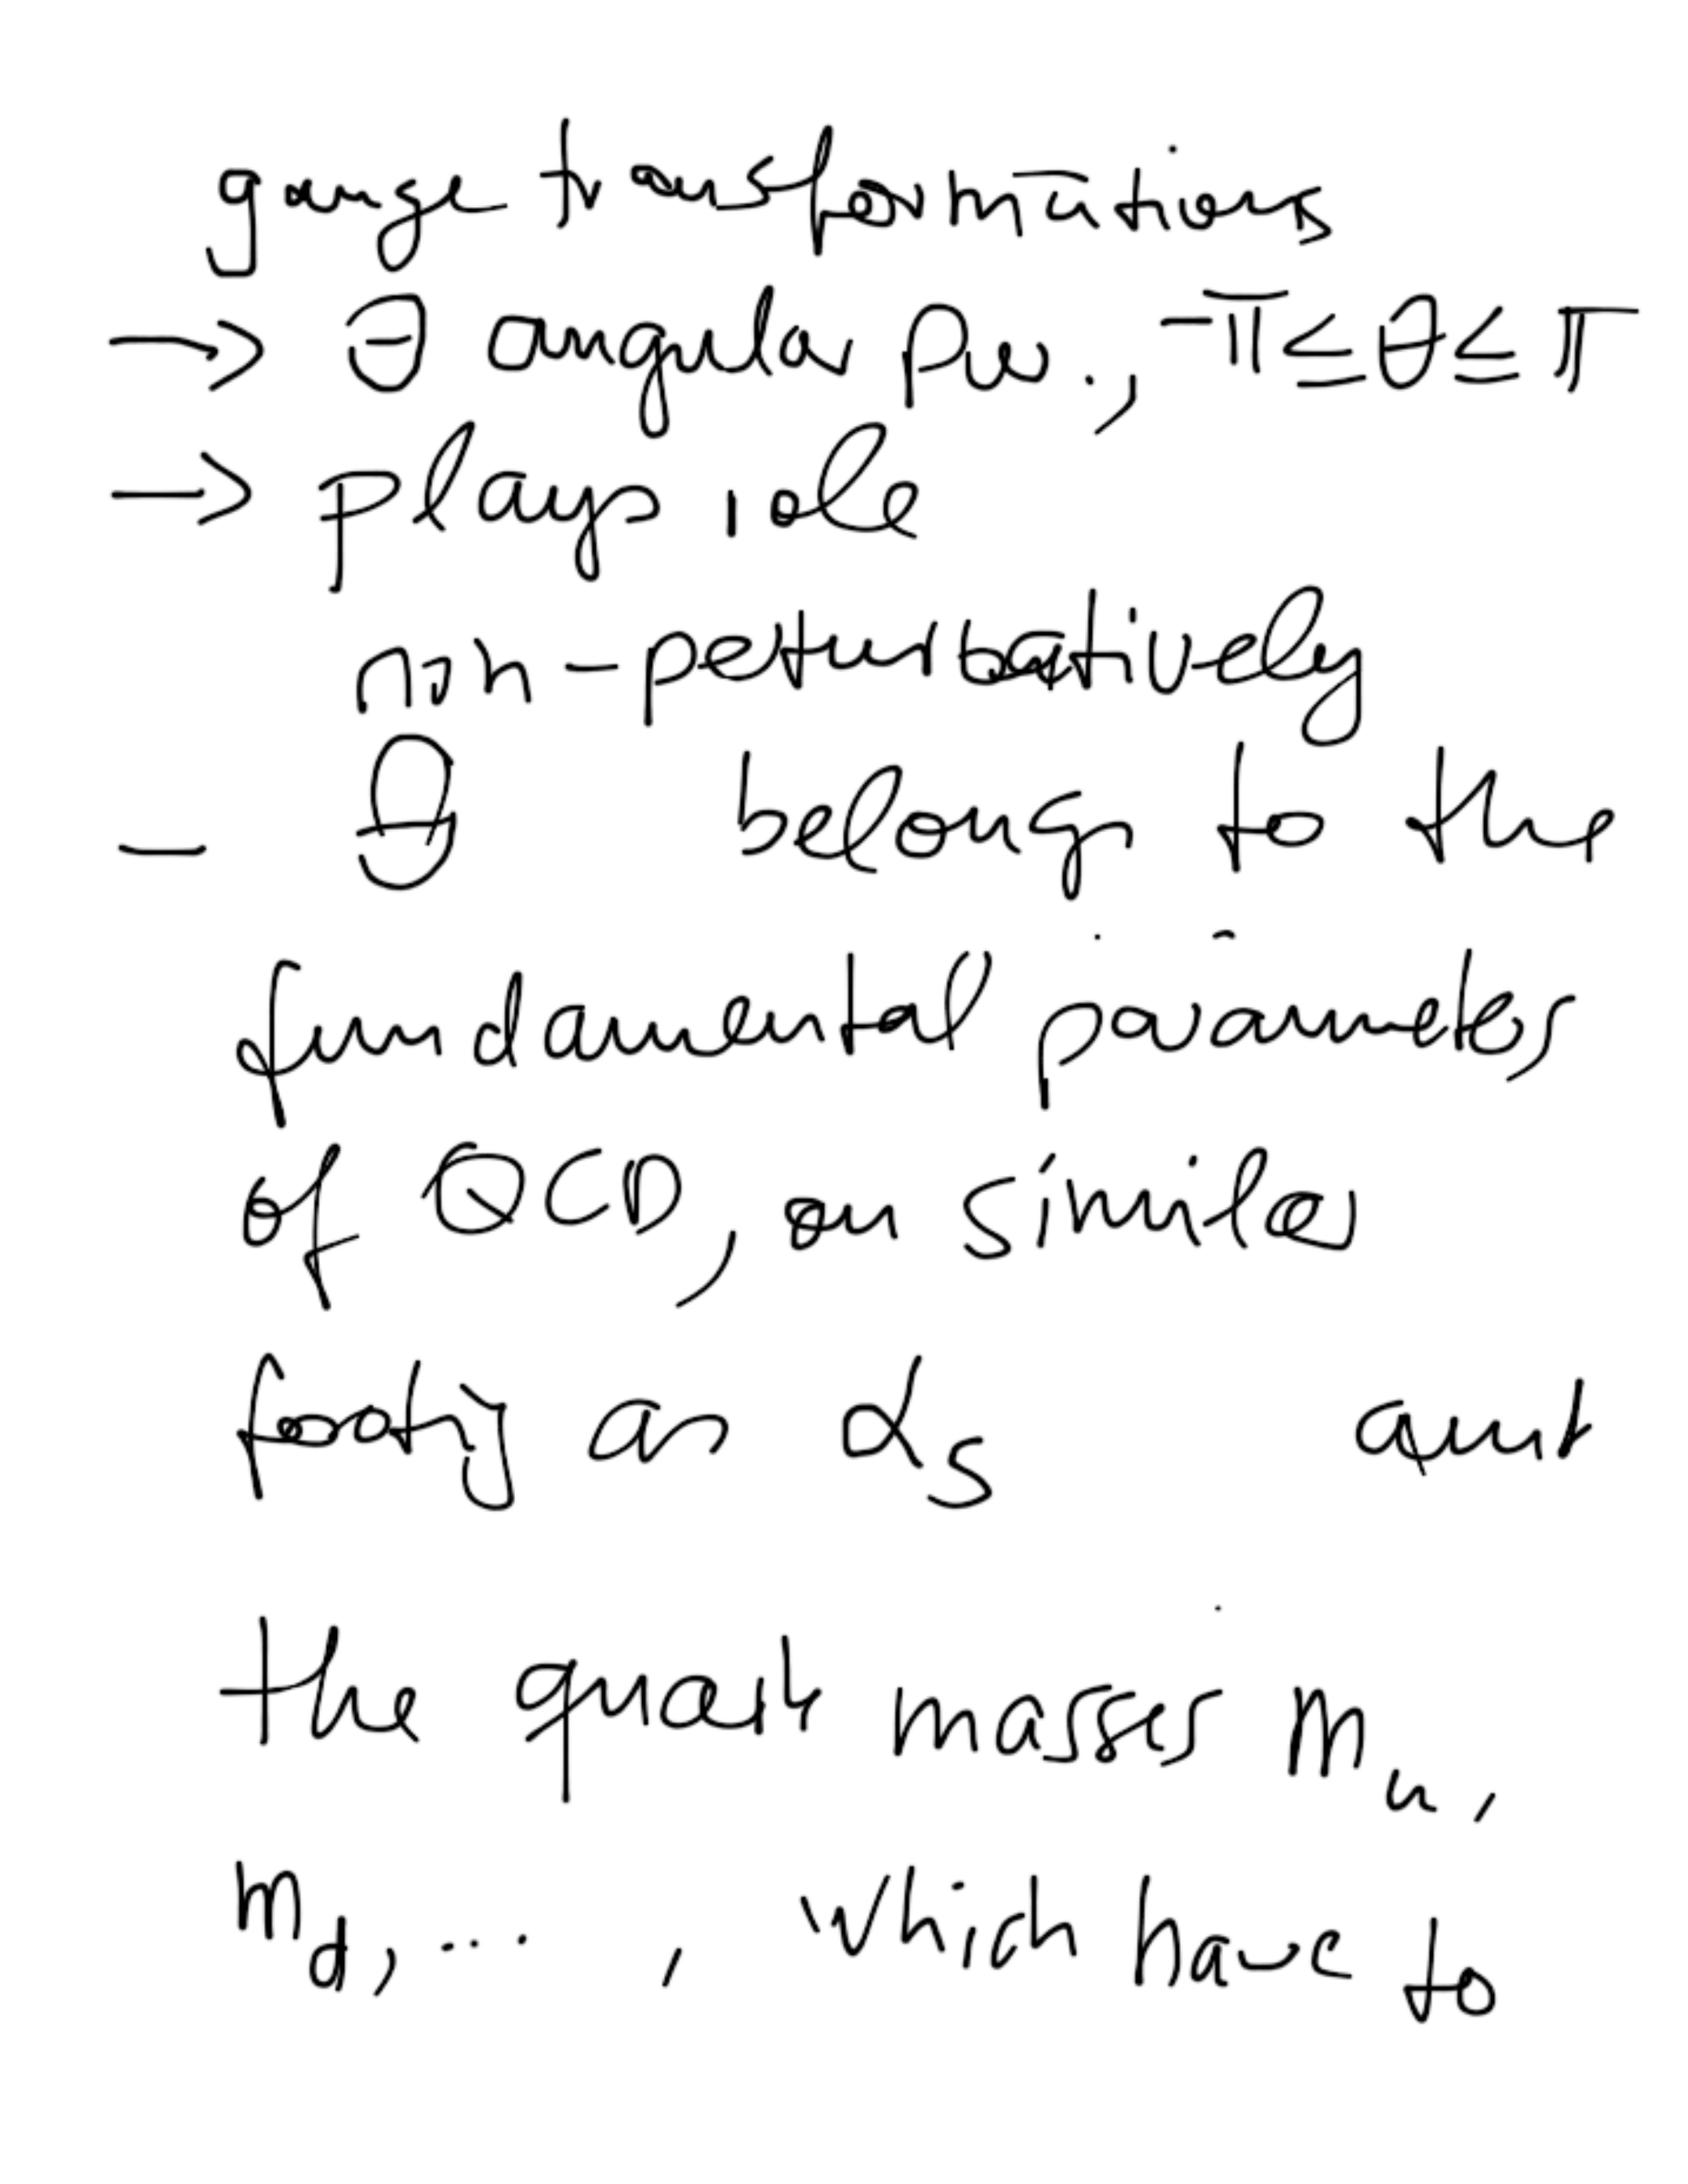 gauge transformations
→ θ angular par., -π ≤ θ ≤ π
→ plays role
non-perturbatively
- θ belongs to the
fundamental parameters
of QCD, on similar
footing as α_s and
the quark masses m_u,
m_d, ... , which have to